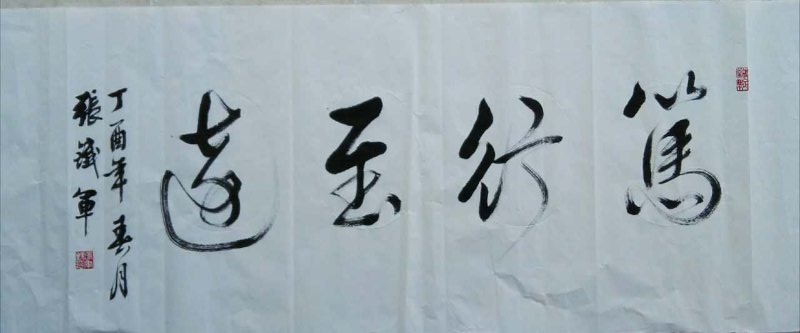 篤行至遠
丁酉年春月
張 軍